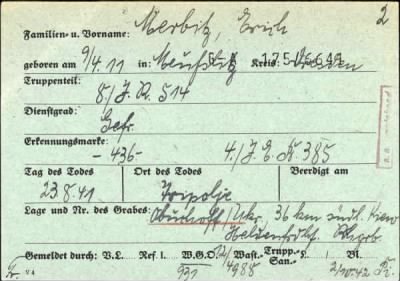 2
Familien- u. Vorname: Merbitz, Erich
geboren am 9/4. 11 in: Kreis:
Truppenteil:
8./J.R. 514
Dienstgrad:
Gefr.
Erkennungsmarke:
- 436 - 4./J.E.B. 385
Tag des Todes Ort des Todes Beerdigt am
23.8.41 Tripolje
Lage und Nr. des Grabes: /Ukr. 36 km südl. Kiew
Heldenfrdhf.
Gemeldet durch: V.L. Ref. I. W.G.O. /Wast.- Trupp.- / L. / Bl.
San.-
931 4988 2/10.42
24